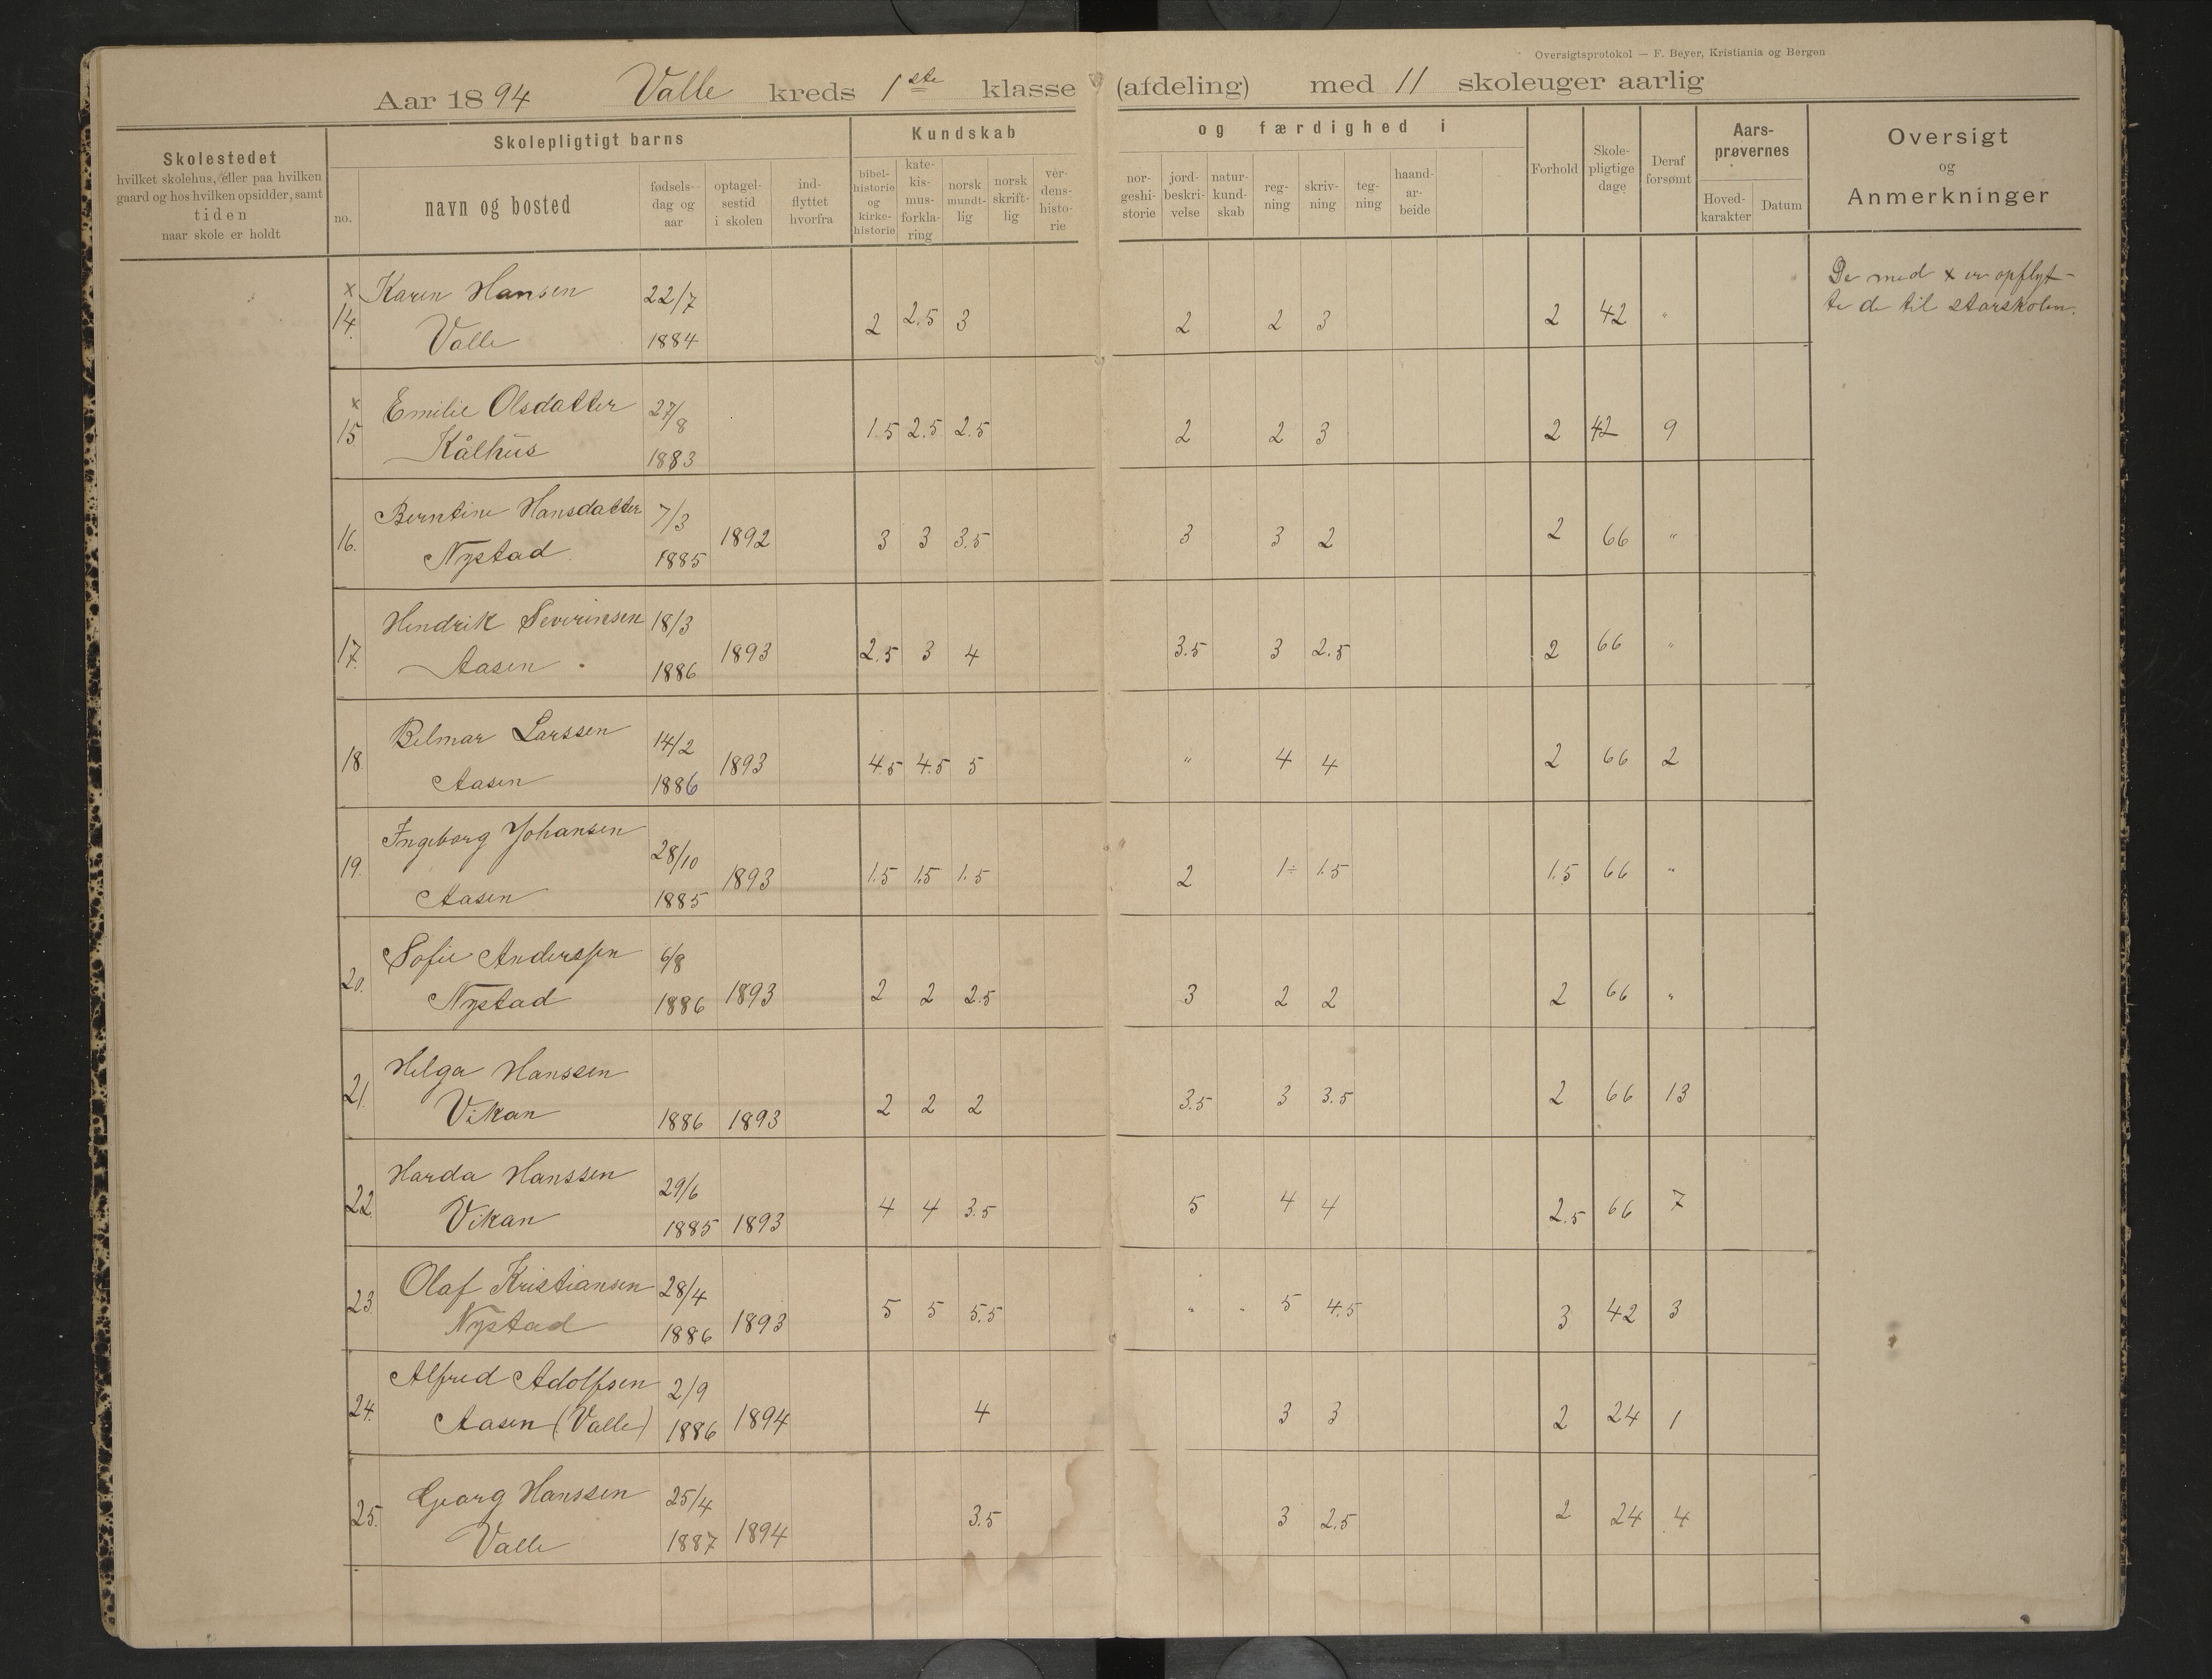 Oversigtsprotokol — F. Beyer, Kristiania og Bergen
Aar 1894 Valle kreds 1ste klasse (afdeling) med 11 skoleuger aarlig
Skolestedet
hvilket skolehus, eller paa hvilken
gaard og hos hvilken opsidder, samt
tiden
naar skole er holdt
Skolepligtigt barns
no.
navn og bosted
fødsels-
dag og
aar
optagel-
sestid
i skolen
ind-
flyttet
hvorfra
Kundskab
bibel-
historie
og
kirke-
historie
kate-
kis-
mus-
forkla-
ring
norsk
mundt-
lig
norsk
skrift-
lig
ver-
dens-
histo-
rie
og færdighed i
nor-
geshi-
storie
jord-
beskri-
velse
natur-
kund-
skab
reg-
ning
skriv-
ning
teg-
ning
haand-
ar-
beide
Forhold
Skole-
pligtige
dage
Deraf
forsømt
Aars-
prøvernes
Hoved-
karakter
Datum
Oversigt
og
Anmerkninger
x Karen Hansen 22/7
14. Valle 1884 2 2.5 3 2 2 3 2 42 "
De med x er opflyt-
te de til storskolen.
x Emilie Olsdatter 27/8
15 Kålhus 1883 1.5 2.5 2.5 2 2 3 2 42 9
Berntine Hansdatter 7/3
16. Nystad 1885 1892 3 3 3.5 3 3 2 2 66 "
Hendrik Severinsen 18/3
17. Aasen 1886 1893 2.5 3 4 3.5 3 2.5 2 66 "
Belmar Larssen 14/2
18. Aasen 1886 1893 4.5 4.5 5 " 4 4 2 66 2
Ingeborg Johansen 28/10
19. Aasen 1885 1893 1.5 1.5 1.5 2 1÷ 1.5 1.5 66 "
Sofie Anderssen 6/8
20. Nystad 1886 1893 2 2 2.5 3 2 2 2 66 "
Helga Hanssen
21. Vikan 1886 1893 2 2 2 3.5 3 3.5 2 66 13
Harda Hanssen 29/6
22. Vikan 1885 1893 4 4 3.5 5 4 4 2.5 66 7
Olaf Kristiansen 28/4
23. Nystad 1886 1893 5 5 5.5 " " 5 4.5 3 42 3
Alfred Adolfsen 2/9
24. Aasen (Valle) 1886 1894 4 3 3 2 24 1
Georg Hanssen 25/4
25. Valle 1887 1894 3.5 3 2.5 2 24 4